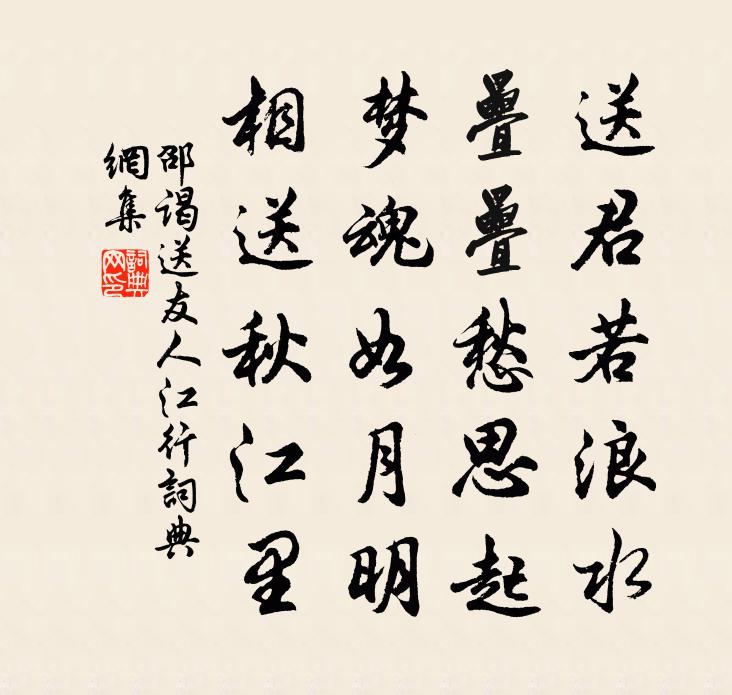 送君若浪水
疊疊愁思起
梦魂如月明
相送秋江里
邵谒送友人江行詞典
網集
詞典网印